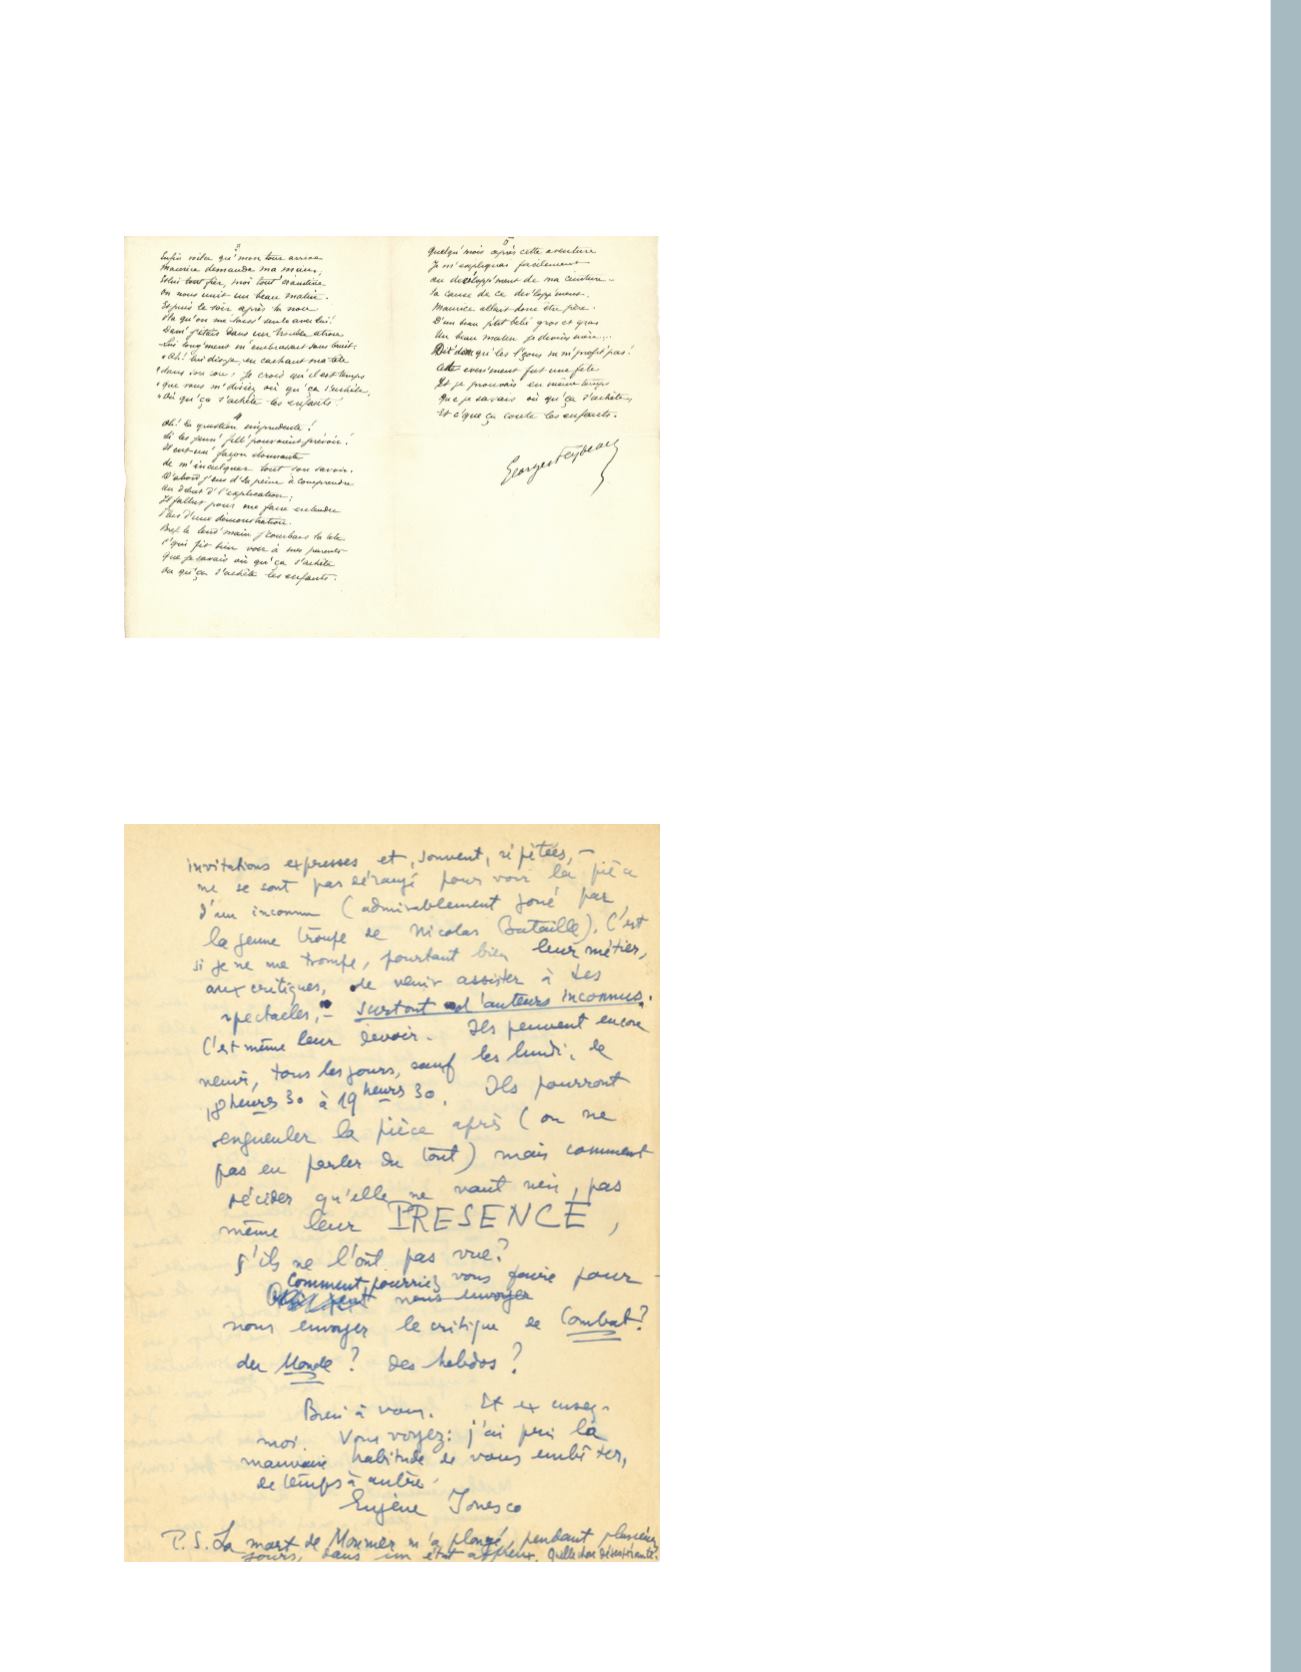 3
Enfin voilà qu'mon tour arriva
Maurice demanda ma main,
Et lui tout fier, moi tout'
On nous unit un beau matin.
Et puis le soir après la noce
V'là qu'on me laiss' seule avec lui!
Dam! j'étais dans un' trouble atroce
Lui long'ment m'embrassait sans bruit:
« Ah! lui dis-je, en cachant ma tête
« dans son cou; je crois qu'il est temps
« que vous m'disiez où qu'ça s'achète,
« Où qu'ça s'achète les enfants!
4
Ah! la question imprudente!
Si les jeun' fill' pouvaient prévoir!
Il eut un' façon étonnante
de m'inculquer tout son savoir.
D'abord j'eus d'la peine à comprendre
Au début d'l'explication;
Il fallut pour me faire entendre
Plus d'une démonstration.
Bref le lend'main j'courbais la tête
C'qui fit bien voir à mes parents
Que je savais où qu'ça s'achète
Où qu'ça s'achète les enfants.
5
Quelqu'mois après cette aventure
Je m'expliquai facilement
au dév'lopp'ment de ma ceinture
la cause de ce dév'lopp'ment.
Maurice allait donc être père.
D'un beau p'tit bébé gros et gras
Un beau matin je devins mère...
Dit' donc qu'les l'çons m'profit' pas!
Cett' évèn'ment fut une fête
Et je prouvais en même temps
Que je savais où qu'ça s'achète
Et c'que ça coûte les enfants.
Georges Feydeau
invitations expresses et, souvent, répétées, –
ne se sont pas dérangé pour voir la pièce
d'un inconnu (admirablement joué par
la jeune troupe de Nicolas Bataille). C'est
si je ne me trompe, pourtant bien leur métier,
aux critiques, de venir assister à des
spectacles, – surtout d'auteurs inconnus.
C'est même leur devoir. Ils peuvent encore
venir, tous les jours, sauf les lundi, de
18 heures 30 à 19 heures 30. Ils pourront
engueuler la pièce après (ou ne
pas en parler du tout) mais comment
décider qu'elle ne vaut rien, pas
même leur PRESENCE,
s'ils ne l'ont pas vue?
Comment pourriez vous faire pour
nous envoyer
nous envoyer le critique de Combat?
du Monde? des hebdos?
Bien à vous. Et excusez-
moi. Vous voyez: j'ai pris la
mauvaise habitude de vous embêter,
de temps à autre.
Eugène Ionesco
P.S. La mort de Mounier m'a plongé, pendant plusieurs
jours, dans un état affreux. Quelle chose désespérante!